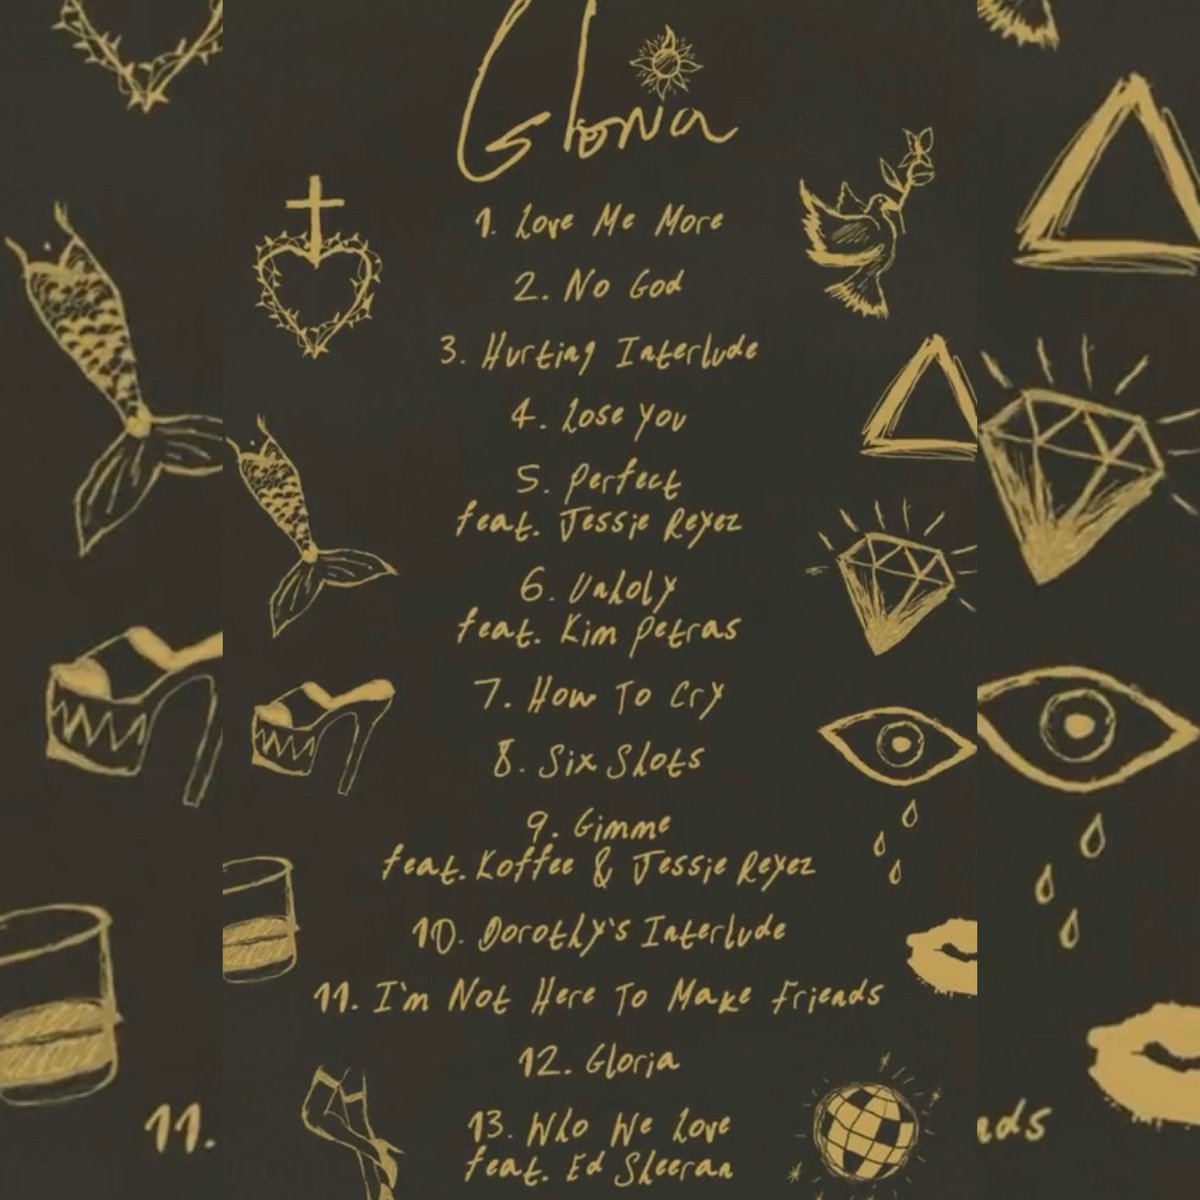 Gloria
1. Love Me More
2. No God
3. Hurting Interlude
4. Lose You
5. Perfect
feat. Jessie Reyez
6. Unholy
feat. Kim Petras
7. How To Cry
8. Six Shots
9. Gimme
feat. Koffee & Jessie Reyez
10. Dorothy's Interlude
11. I'm Not Here To Make Friends
12. Gloria
13. Who We Love
feat. Ed Sheeran
11.
nds